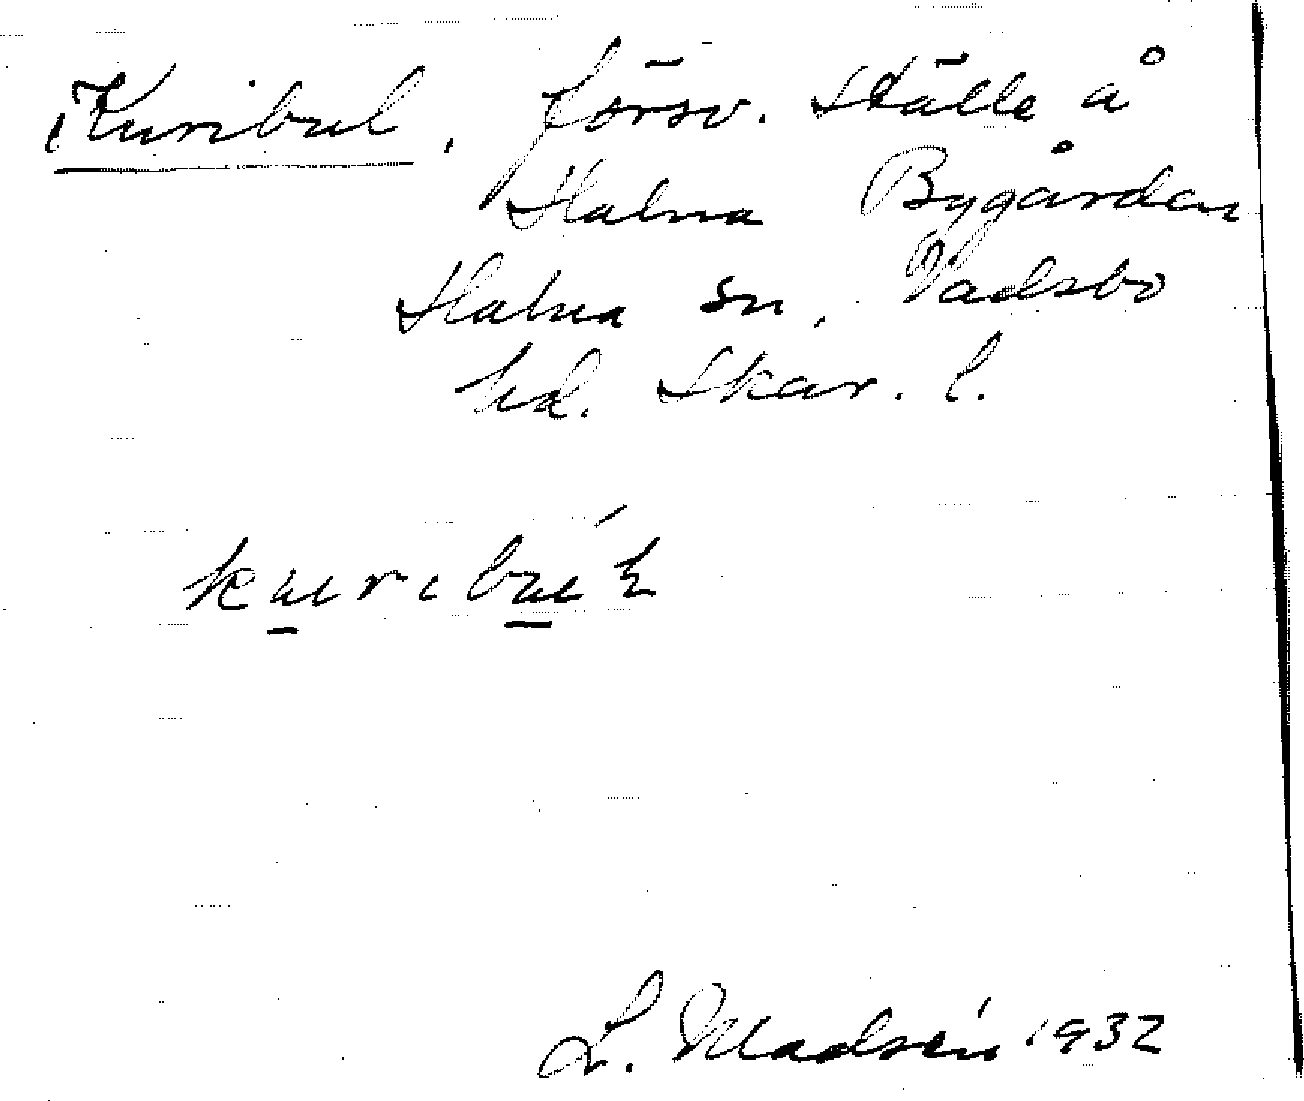 Kuribul, försv. ställe å
Halna Bygården
Halna sn, Vadsbo
hd. Skar. l.
L. Madsén 1932